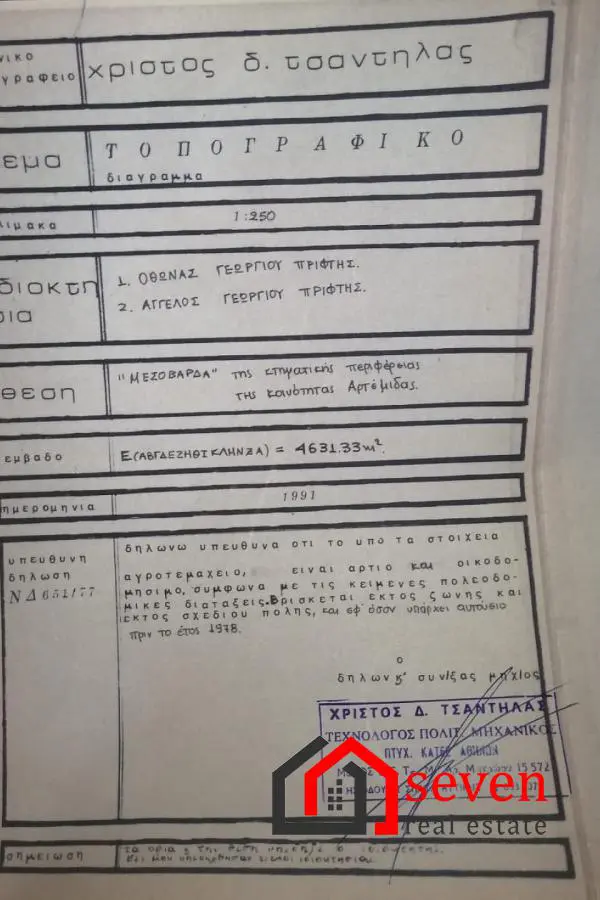 νικο
γραφειο
χριστος δ. τσαντηλας
εμα
ΤΟΠΟΓΡΑΦΙΚΟ
διαγραμμα
ιμακα
1:250
διοκτη
σια
1. ΟΘΩΝΑΣ ΓΕΩΡΓΙΟΥ ΠΡΙΦΤΗΣ.
2. ΑΓΓΕΛΟΣ ΓΕΩΡΓΙΟΥ ΠΡΙΦΤΗΣ.
θεση
"ΜΕΣΟΒΑΡΔΑ" της κτηματικής περιφέρειας
της κοινότητας Αρτέμιδας.
εμβαδο
Ε(ΑΒΓΔΕΖΗΘΙΚΛΗΝΞΑ) = 4631.33m².
ημερομηνια
1991
υπευθυνη
δηλωση
ΝΔ651/77
δηλωνω υπευθυνα οτι το υπο τα στοιχεια
αγροτεμαχειο, ειναι αρτιο και οικοδο-
μησιμο, συμφωνα με τις κειμενες πολεοδο-
μικες διαταξεις. Βρισκεται εκτος ζωνης και
εκτος σχεδιου πολης, και εφ' όσον υπάρχει αυτούσιο
πριν το έτος 1978.
ο
δηλων κ' συν/ξας μηχ/ος
ΧΡΙΣΤΟΣ Δ. ΤΣΑΝΤΗΛΑΣ
ΤΕΧΝΟΛΟΓΟΣ ΠΟΛΙΤ. ΜΗΧΑΝΙΚΟΣ
ΠΤΥΧ. ΚΑΤΕΕ ΑΘΗΝΩΝ
15 572
seven
real estate
σημειωση
τα ορια